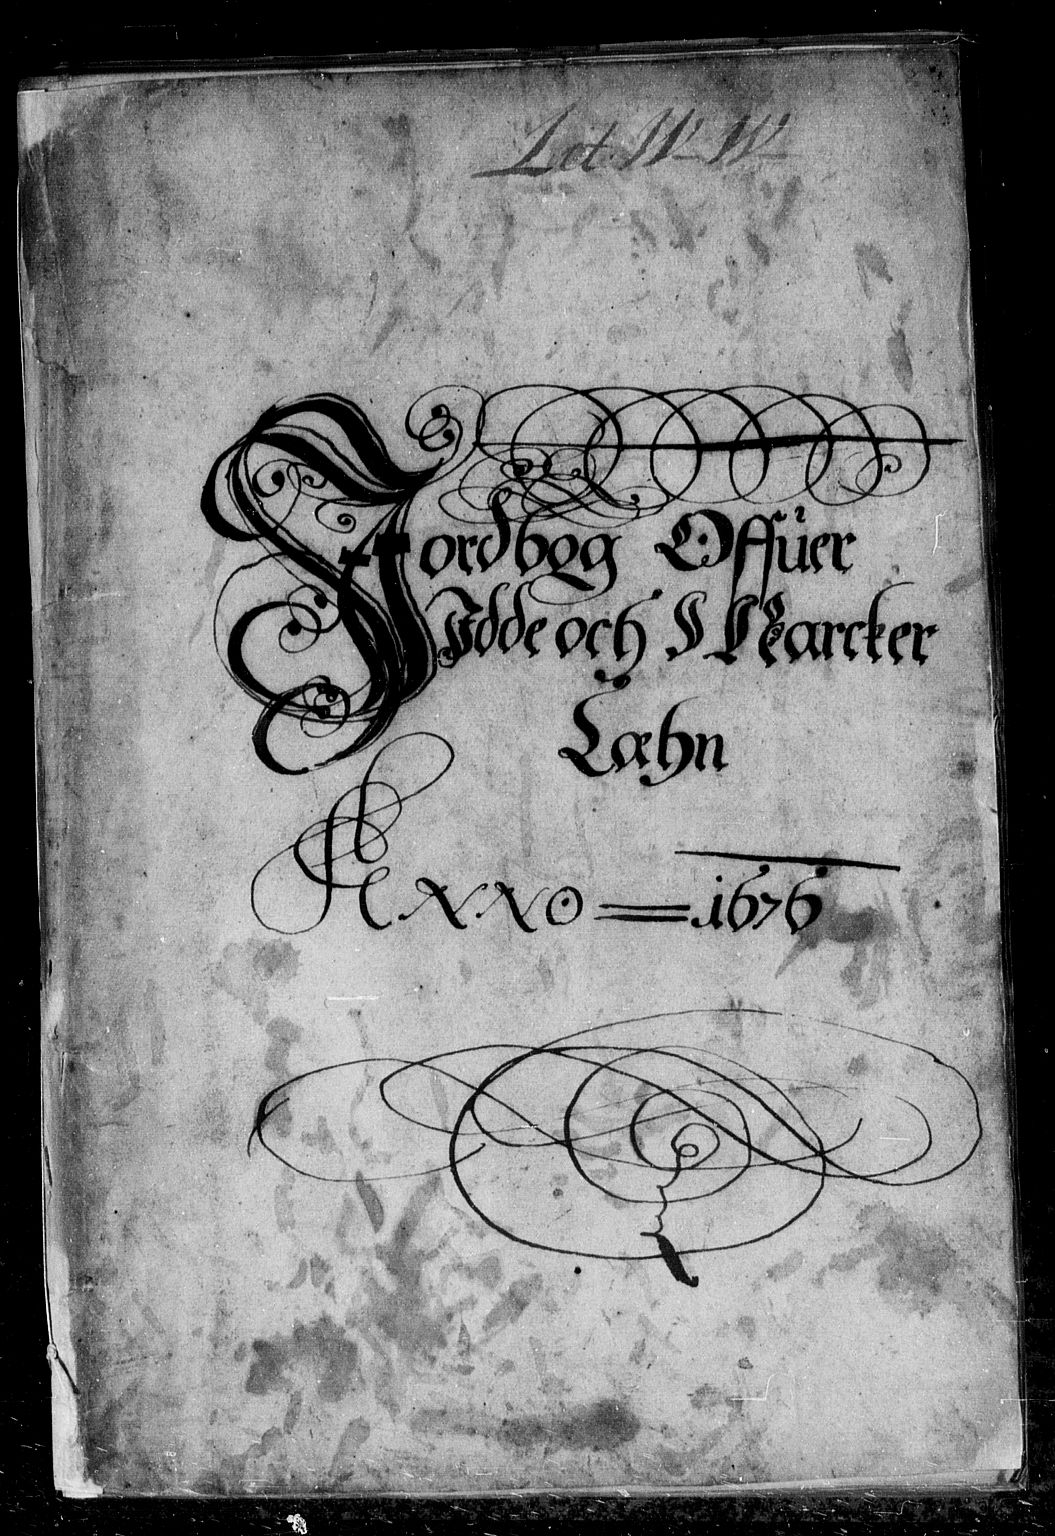 Lit W W
Jordbog Offuer
Idde och Marcker
Læhn
Anno 1676